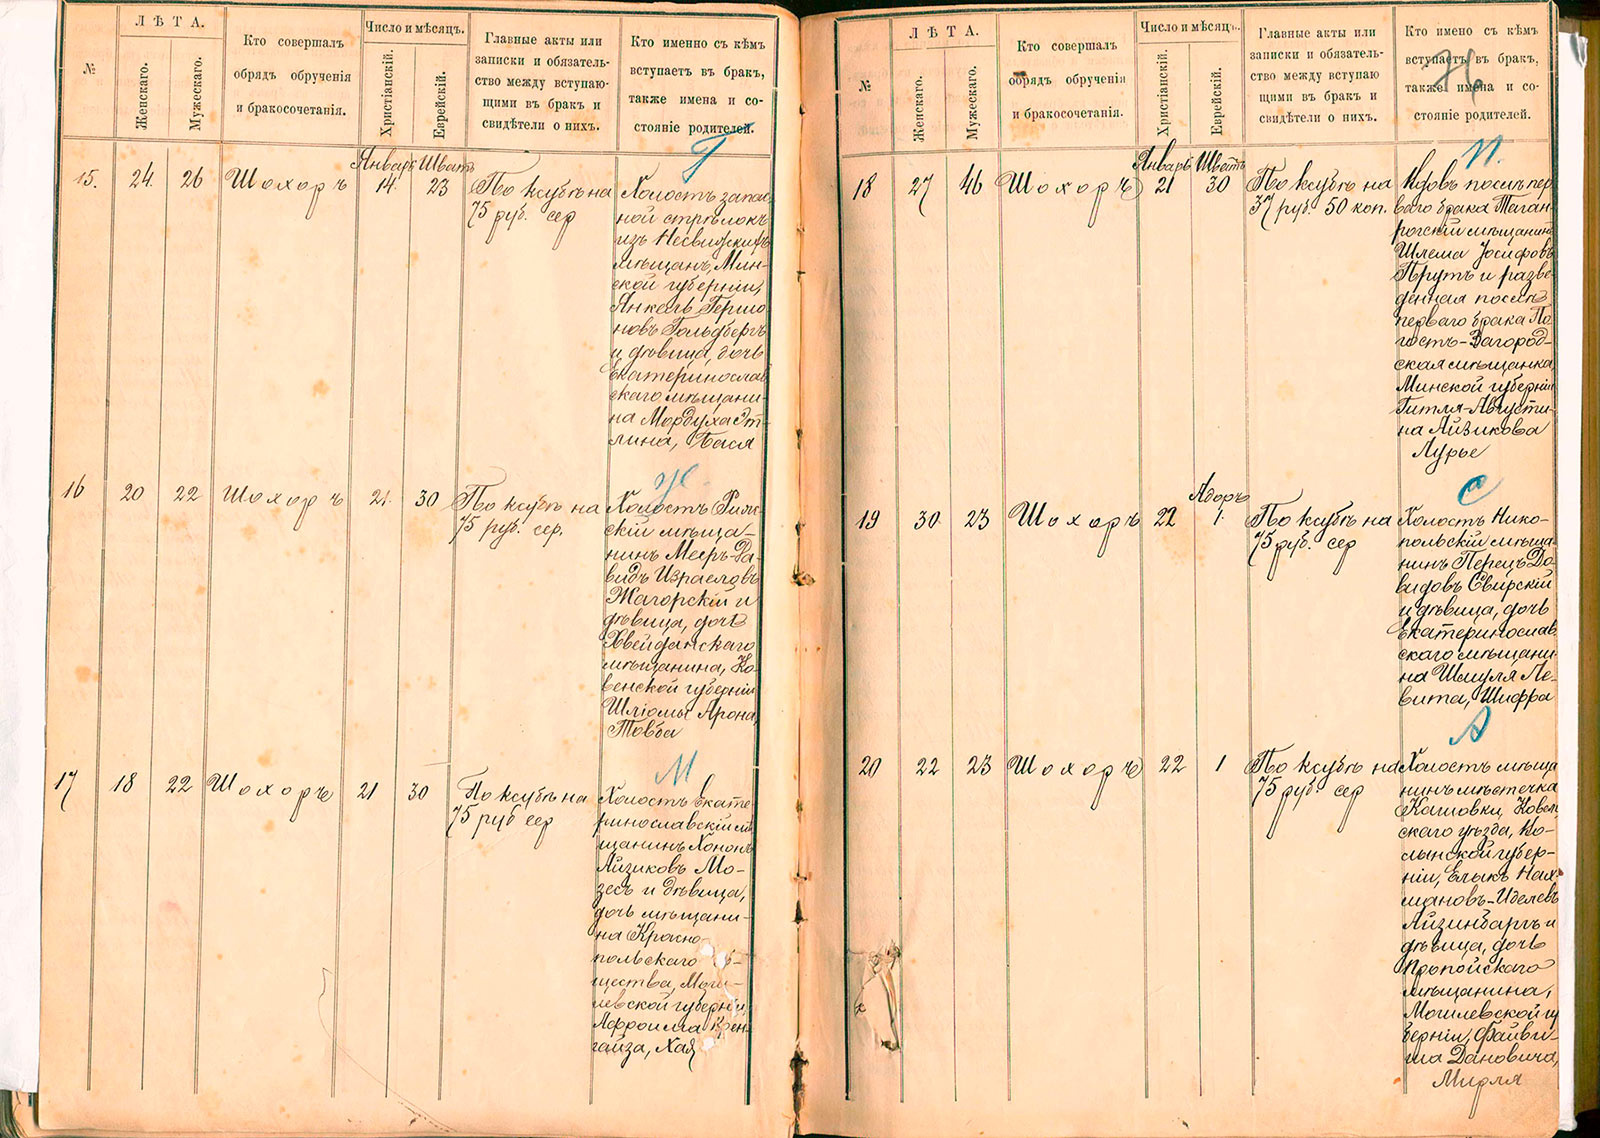 №
ЛѢТА.
Женскаго.
Мужескаго.
Кто совершалъ
обрядъ обрученія
и бракосочетанія.
Число и мѣсяцъ.
Христіанскій.
Еврейскій.
Главные акты или
записки и обязатель-
ство между вступаю-
щими въ бракъ и
свидѣтели о нихъ.
Кто именно съ кѣмъ
вступаетъ въ бракъ,
также имена и со-
стояніе родителей.
Г
15. 24 26 Шохоръ
Январь 14. Шватъ 23
По ксубѣ на
75 руб. сер
Холостъ запас-
ной стрѣлокъ
изъ Несвижскихъ
мѣщанъ, Мин-
ской губерніи,
Янкель Гершо
новъ Гольдбергъ
и дѣвица, дочь
Екатеринослав
скаго мѣщани-
на Мордуха Эт-
лина, Бася
Ж
16 20 22 Шохоръ 21. 30
По ксубѣ на
75 руб. сер.
Холостъ
скій мѣща-
нинъ Мееръ-Да-
видъ Израелевъ
Жагорскій и
дѣвица, дочь
Хвейданскаго
мѣщанина, Ко-
венской губерніи
Шліомы Арона,
Товба
М
17 18 22 Шохоръ 21 30
По ксубѣ на
75 руб сер
Холостъ Екате-
ринославскій мѣ
щанинъ Хононъ
Айзиковъ Мо-
зесъ и дѣвица,
дочь мѣщани-
на Красно-
польскаго об-
щества, Моги-
левской губерніи,
Афроима Крен-
гайза, Хая
№
ЛѢТА.
Женскаго.
Мужескаго.
Кто совершалъ
обрядъ обрученія
и бракосочетанія.
Число и мѣсяцъ.
Христіанскій.
Еврейскій.
Главные акты или
записки и обязатель-
ство между вступаю
щими въ бракъ и
свидѣтели о нихъ.
Кто именно съ кѣмъ
вступаетъ въ бракъ,
также имена и со-
стояніе родителей.
П.
18 27 46 Шохоръ
Январь 21 Шватъ 30
По ксубѣ на
37 руб. 50 коп.
Вдовъ послѣ пер
ваго брака Таган-
рогскій мѣщанинъ
Шлема Іосифовъ
Прутъ и разве-
денная послѣ
перваго брака По
гостъ-Загород-
ская мѣщанка,
Минской губерніи
Гитля-Августи-
на Айзикова
Лурье
С
19 30 23 Шохоръ 22 Адоръ 1.
По ксубѣ на
75 руб. сер
Холостъ Нико-
польскій мѣща
нинъ Перецъ До-
видовъ Свирскій
и дѣвица, дочь
Екатеринослав
скаго мѣщани-
на Шмуля Ле-
вита, Шифра
А
20 22 23 Шохоръ 22 1
По ксубѣ на
75 руб. сер
Холостъ мѣща
нинъ мѣстечка
Кашовки, Ковель
скаго уѣзда, Во-
лынской губер-
ніи, Ельикъ Нах-
мановъ-Иделевъ
Айзинбаргъ и
дѣвица, дочь
Пропойскаго
мѣщанина,
Могилевской гу
берніи, Файви-
ша Дановича,
Мирля